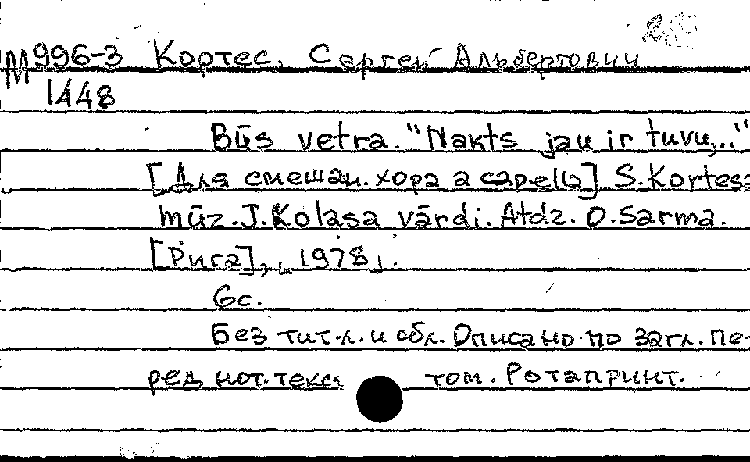 М996-3 Кортес, Сергей Альбертович
1448
Būs vetra. "Nakts jau ir tuvu,.."
[Для смешан. хора a capella] S. Kortesa
mūz. J. Kolasa vārdi. Atdz. O. Sarma.
[Рига], 1978.
6с.
Без тит. л. и обл. Описано по загл. пе-
ред нот. текс том. Ротапринт.